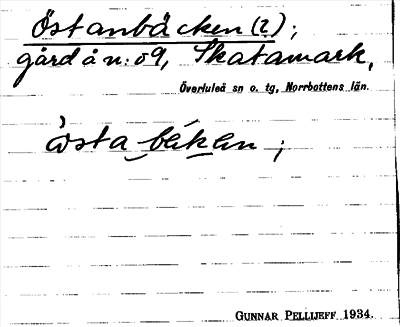 Östanbäcken (?);
gård å n:o 9, Skatamark,
Överluleå sn o. tg, Norrbottens län.
östa bäkän ;
GUNNAR PELLIJEFF 1934.